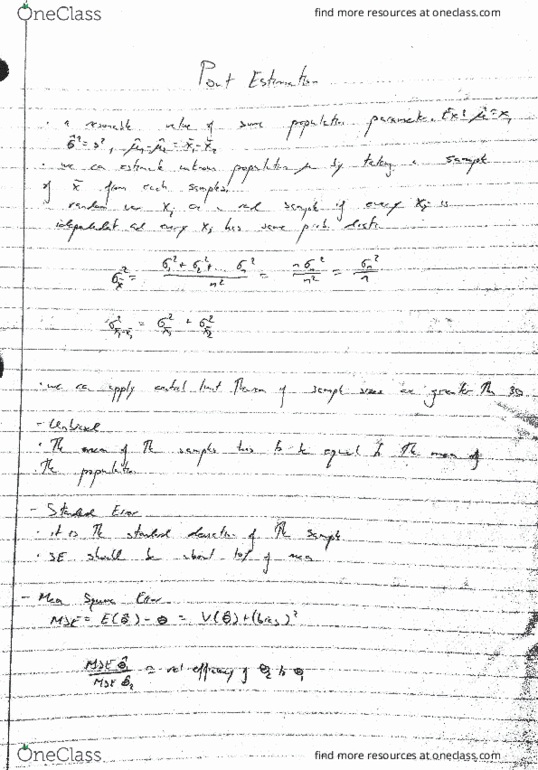 OneClass
find more resources at oneclass.com
Point Estimation
• a reasonable value of some population parameter. Ex: μ̂ = x̄,
σ̂² = s², μ̂₁-μ̂₂ = x̄₁-x̄₂
• we can estimate unknown population μ by taking a sample
of x̄ from each samples.
random var Xᵢ are a rand sample if every Xᵢ is
independent and every Xᵢ has same prob. distr.
σ²x̄ = σ₁² + σ₂² + ... σₙ² / n² = nσₙ² / n² = σₙ² / n
σ²x̄₁-x̄₂ = σ²x̄₁ + σ²x̄₂
• we can apply central limit Theorem if sample sizes are greater Th 30
- Unbiased
• The mean of The samples has to be equal to The mean of
The population
- Standard Error
• it is The standard deviation of The sample
• SE should be about 10% of mean
- Mean Square Error
MSE = E(θ̂) - θ = V(θ̂) + (bias)²
MSE θ̂₁ / MSE θ̂₂ = rel efficiency of θ₂ to θ₁
OneClass
find more resources at oneclass.com